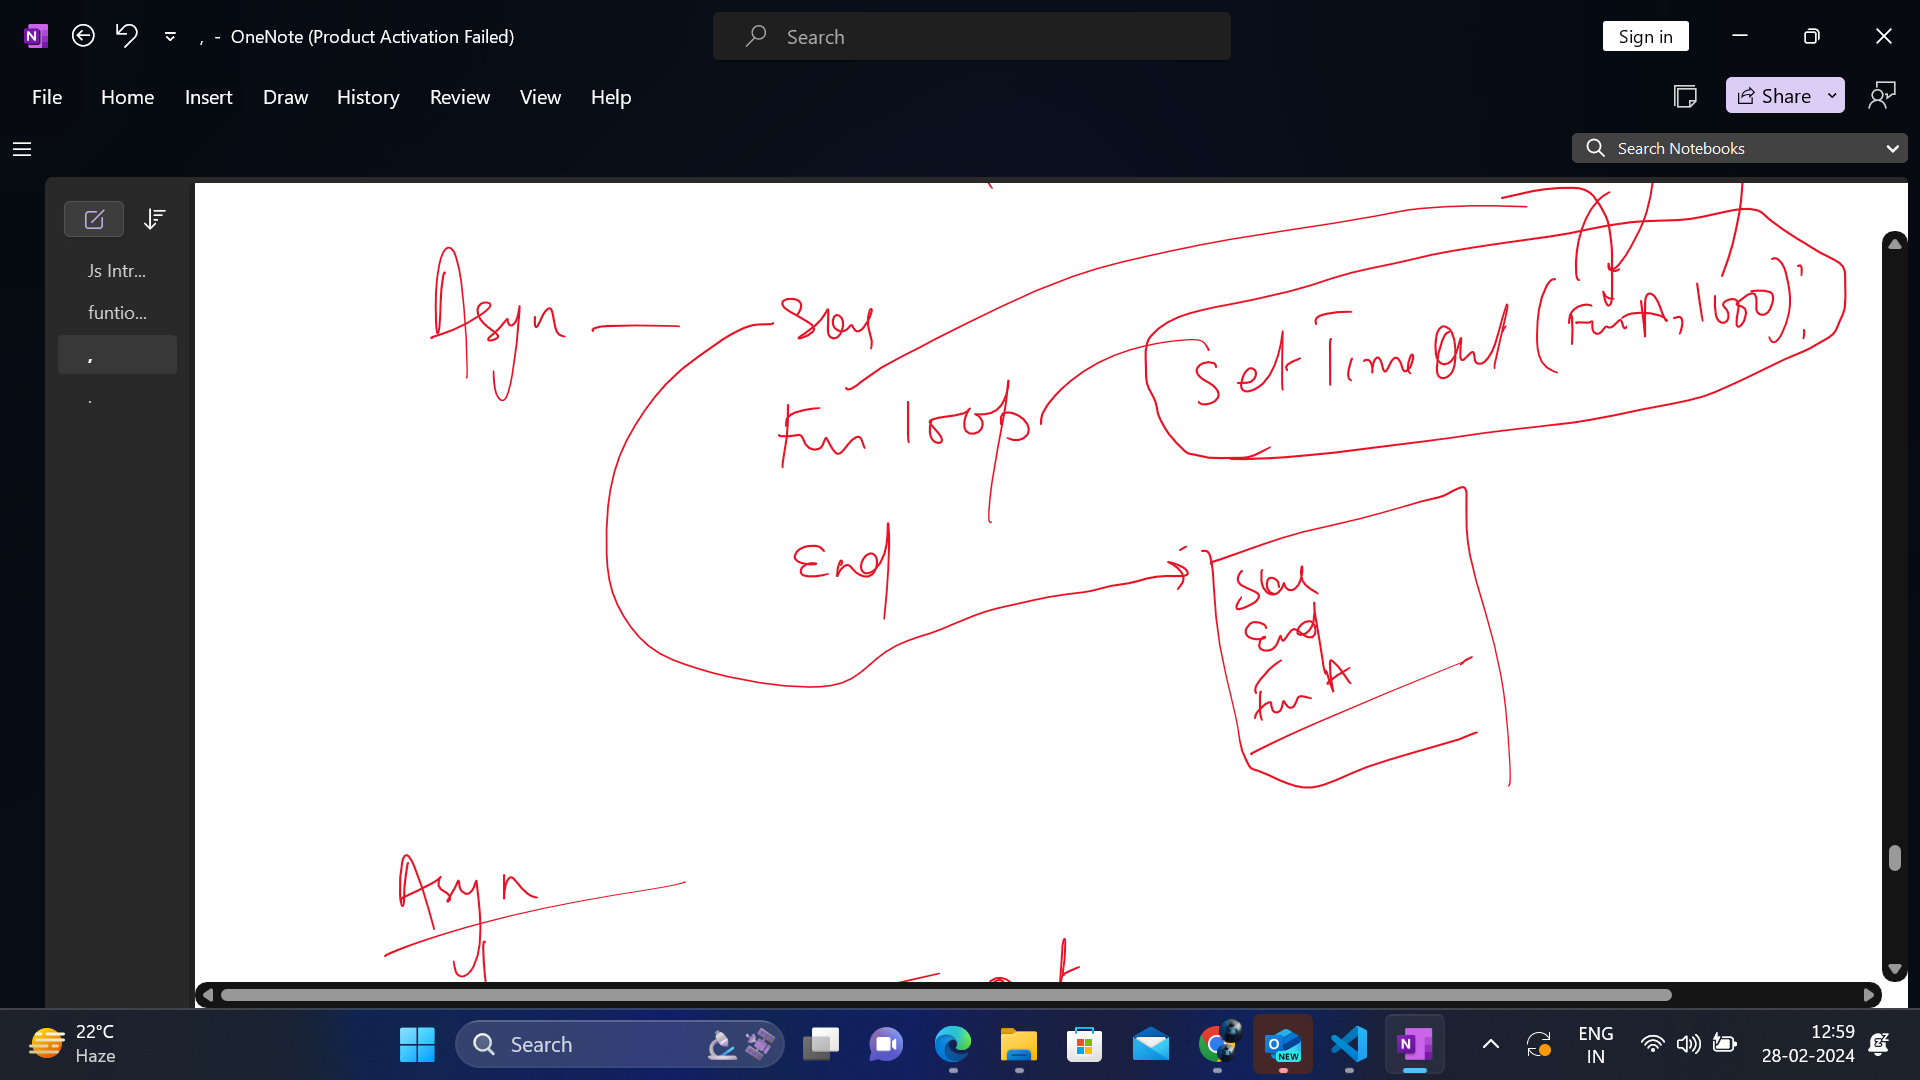 , - OneNote (Product Activation Failed)
Search
Sign in
File Home Insert Draw History Review View Help
Share
Search Notebooks
Js Intr...
funtio...
,
.
Asyn —
SetTimeOut (FunA, 1000);
Fun loop
End
End
Fun A
Asyn
22°C
Haze
Search
NEW
ENG
IN
12:59
28-02-2024